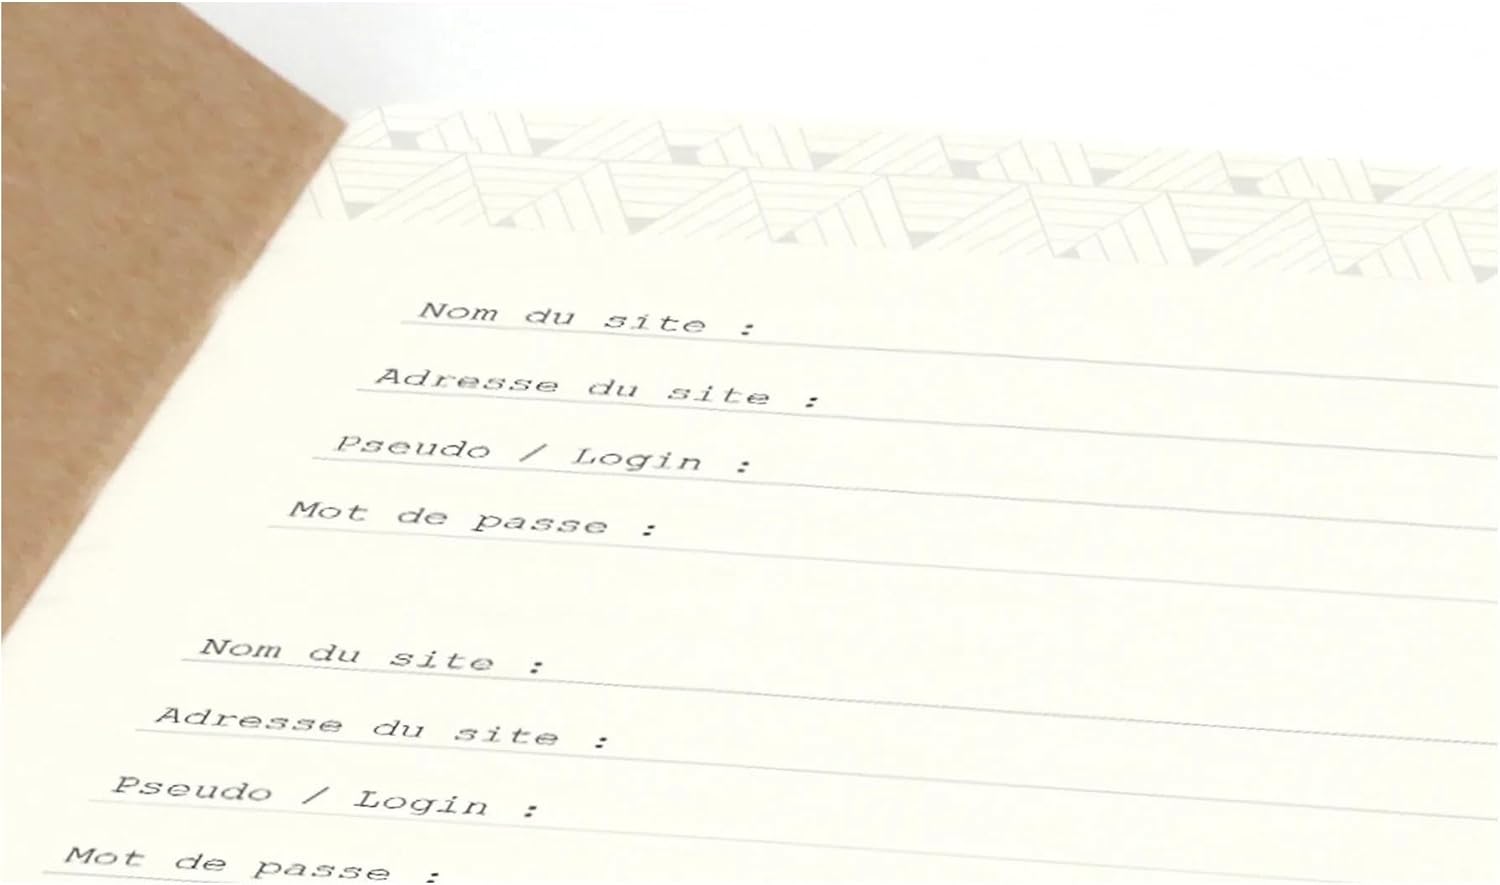 Nom du site :
Adresse du site :
Pseudo / Login :
Mot de passe :
Nom du site :
Adresse du site :
Pseudo / Login :
Mot de passe :